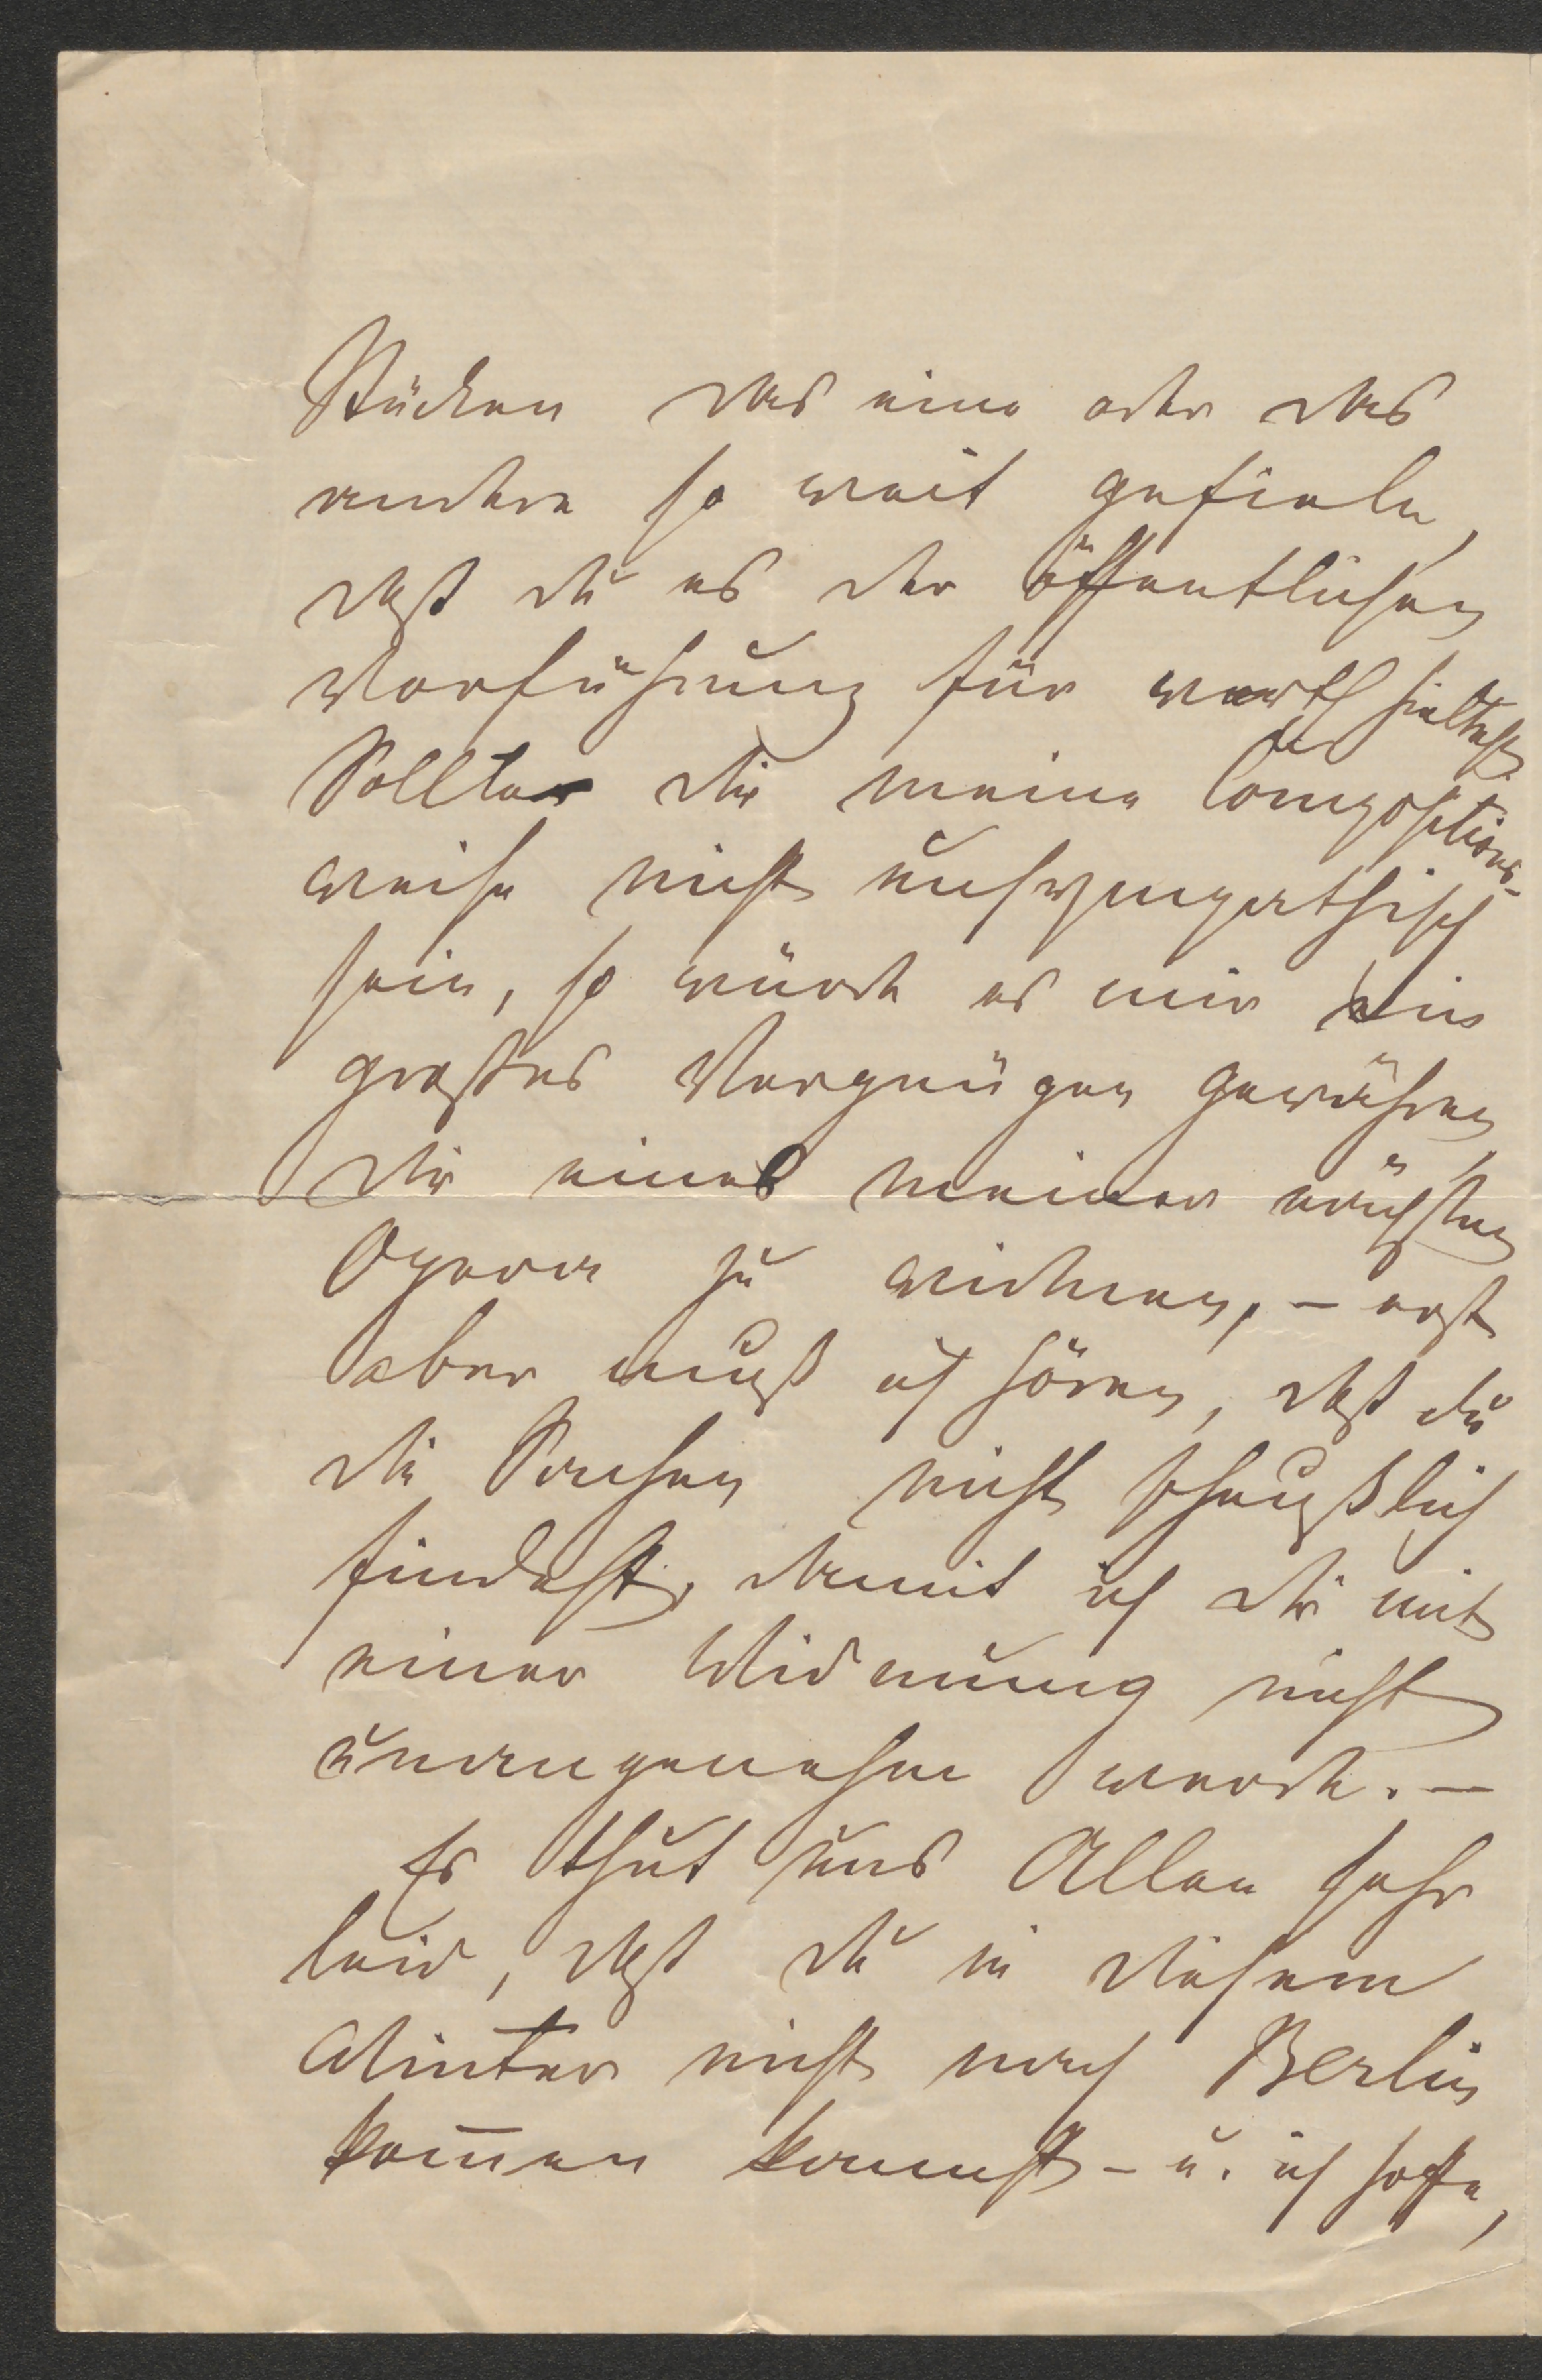 Stücken das eine oder das
andere so weit gefiele,
daß du es der öffentlichen
Vorführung für werth hieltest.
Sollte dir meine Compositions-
weise nicht unsympathisch
sein, so würde es mir ein
großes Vergnügen gewähren,
dir eines meiner nächsten
Opera zu widmen, – erst
aber muß ich hören, daß du
die Sachen nicht scheußlich
findest, damit ich dir mit
einer Widmung nicht
unangenehm werde. –
Es thut uns Allen sehr
leid, daß du in diesem
Winter nicht nach Berlin
kom̅en kannst – u. ich hoffe,